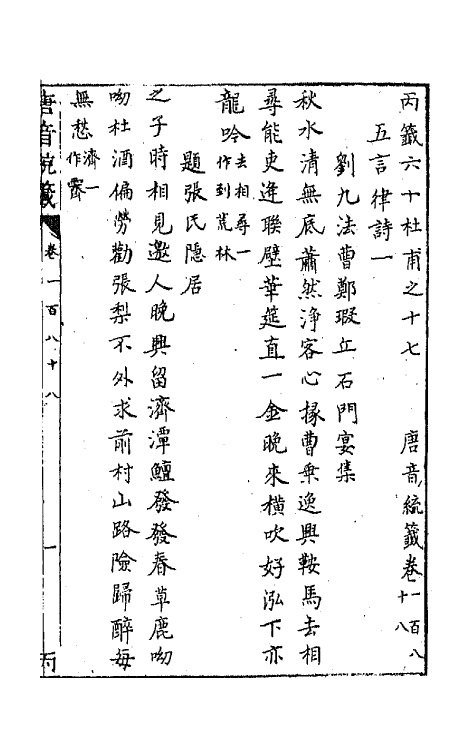 丙籤六十杜甫之十七　唐音統籤卷一百八十八
五言律詩一
劉九法曹鄭瑕丘石門宴集
秋水清無底蕭然淨客心掾曹乗逸興鞍馬去相
尋能吏逢聯壁華筵直一金晚來橫吹好泓下亦
龍吟去相尋一作到荒林
題張氏隐居
之子時相見邀人晚興留濟潭鱣發發春草鹿呦
呦杜酒偏勞勸張梨不外求前村山路險歸醉每
無愁濟一作霽
唐音統籤
卷一百八十八
一
丙